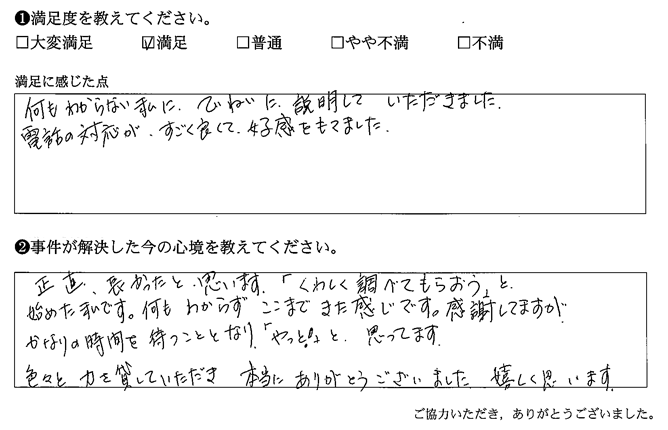 ❶満足度を教えてください。
□大変満足 ☑満足 □普通 □やや不満 □不満
満足に感じた点
何もわからない私に、ていねいに、説明して いただきました。
電話の対応が、すごく良くて、好感をもてました。
❷事件が解決した今の心境を教えてください。
正直、長かったと思います。「くわしく調べてもらおう」と、
始めた私です。何も わからず ここまで きた感じです。感謝してますが
かなりの時間を待つこととなり、「やっと!」と、思ってます。
色々と 力を貸していただき 本当に ありがとうございました。嬉しく思います。
ご協力いただき,ありがとうございました。